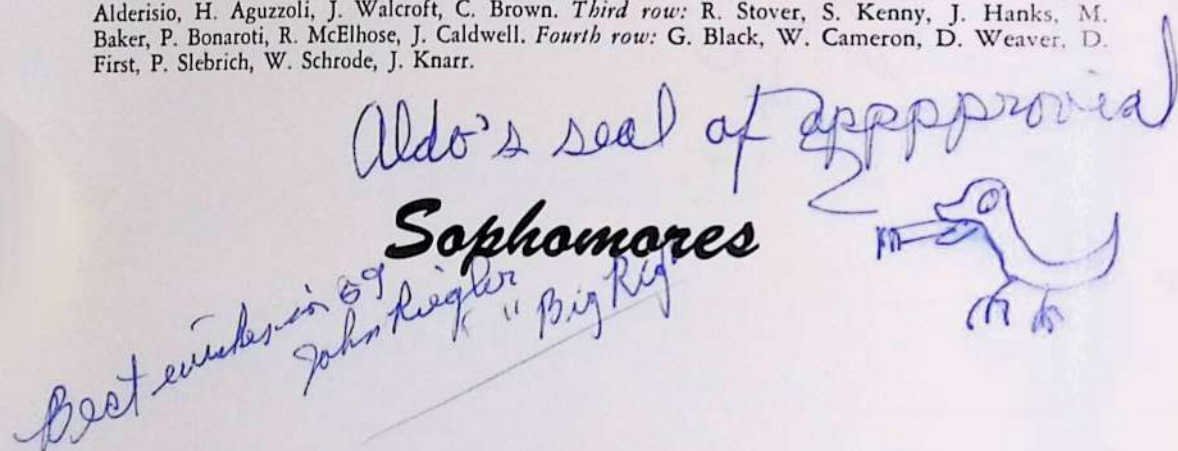 Alderisio, H. Aguzzoli, J. Walcroft, C. Brown. Third row: R. Stover, S. Kenny, J. Hanks, M.
Baker, P. Bonaroti, R. McElhose, J. Caldwell. Fourth row: G. Black, W. Cameron, D. Weaver, D.
First, P. Slebrich, W. Schrode, J. Knarr.
Aldo's seal of apppprovial
Sophomores
Best wishes in 69
John Riegler
" Big Rig